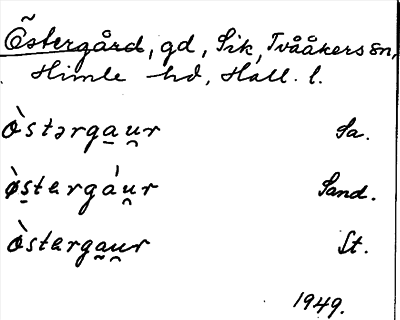 Östergård, gd, Sik, Tvååkers sn,
Himle hd, Hall. l.
ò̀stərga̠u̯r Sa.
ø̀s̠tergáu̯r Sand.
ò̀sterga̠u̯r St.
1949.